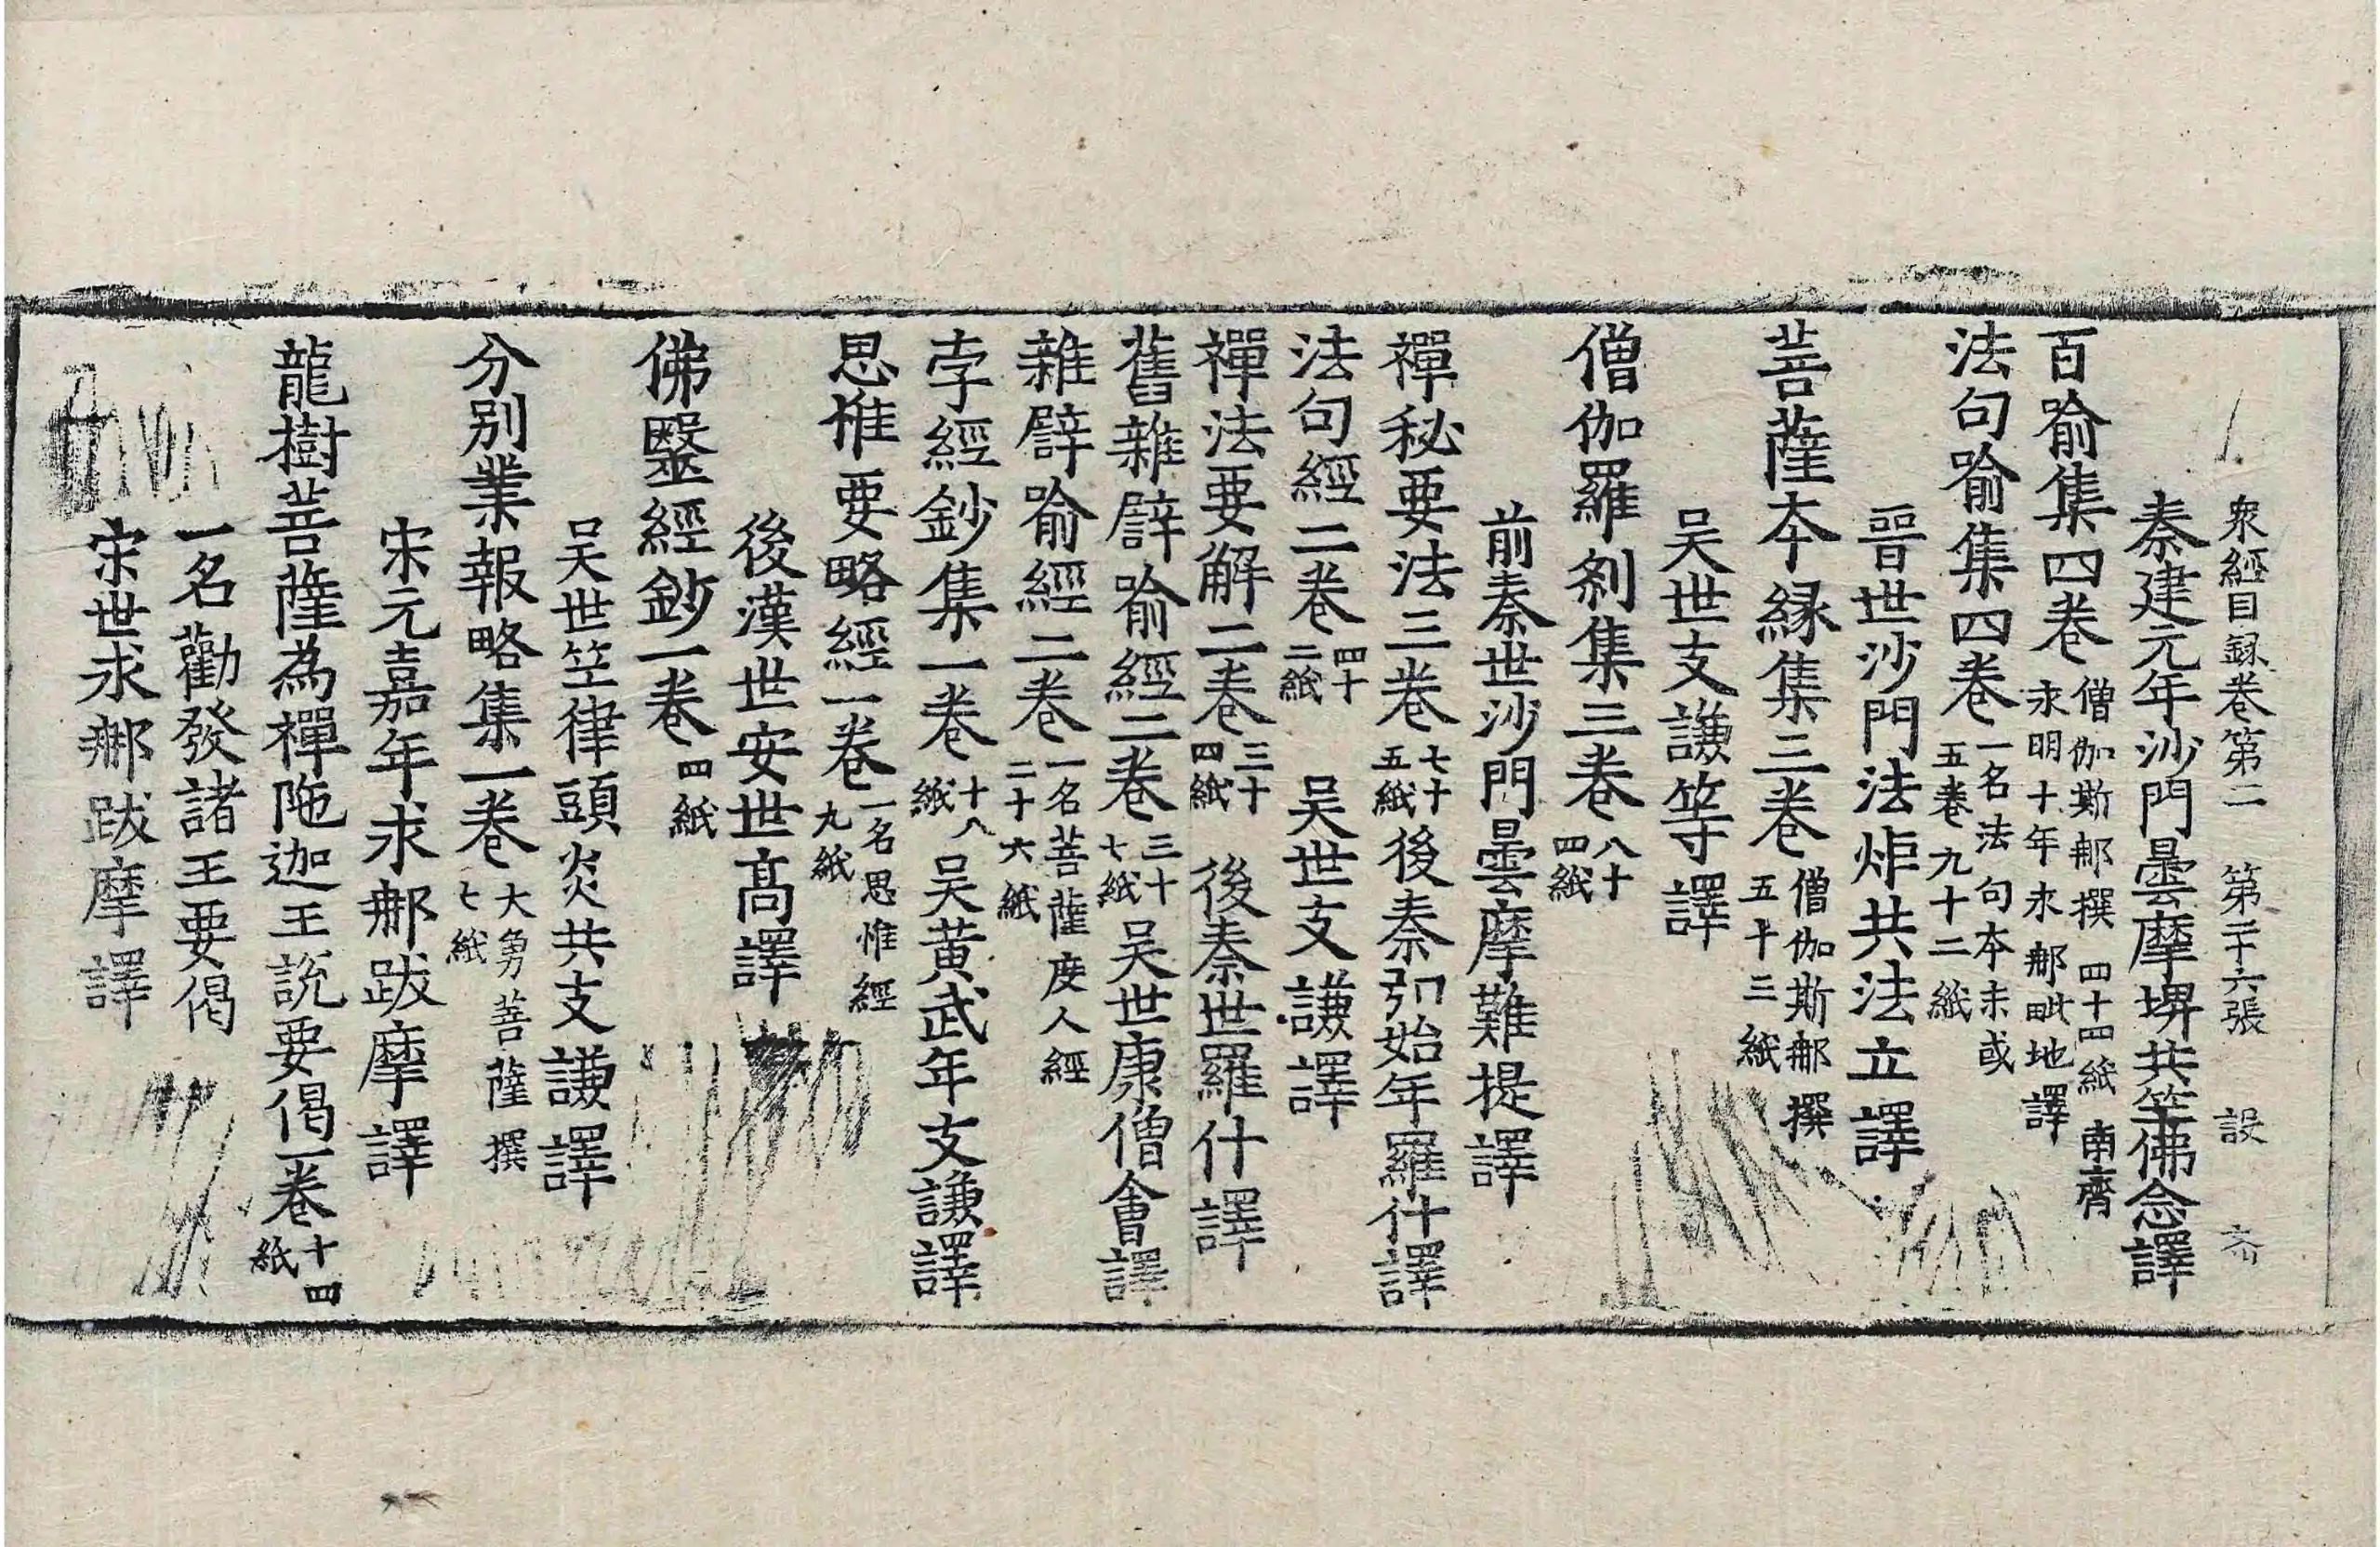 衆經目錄卷第二　第二十六張　設　
秦建元年沙門曇摩埤共竺佛念譯
百喻集四卷　僧伽斯䣕撰　四十四紙　南齊
永明十年永䣕毗地譯
法句喻集四卷　一名法句本末或
五卷九十二紙
晉世沙門法炬共法立譯
菩薩本緣集三卷　僧伽斯䣕撰
五十三紙
吳世支謙等譯
僧伽羅剎集三卷　八十
四紙
前秦世沙門曇摩難提譯
禪秘要法三卷　七十
五紙　後秦弘始年羅什譯
法句經二卷　四十
二紙　吳世支謙譯
禪法要解二卷　三十
四紙　後秦世羅什譯
舊雜譬喻經二卷　三十
七紙　吳世康僧會譯
雜譬喻經二卷　一名菩薩度人經
二十六紙
孛經鈔集一卷　十八
紙　吳黃武年支謙譯
思惟要略經一卷　一名思惟經
九紙
後漢世安世高譯
佛毉經鈔一卷　四紙
吳世竺律頭炎共支謙譯
分別業報略集一卷　大勇菩薩撰
七紙
宋元嘉年求䣕跋摩譯
龍樹菩薩為禪陁迦王說要偈一卷　十四
紙
一名勸發諸王要偈
宋世求䣕跋摩譯